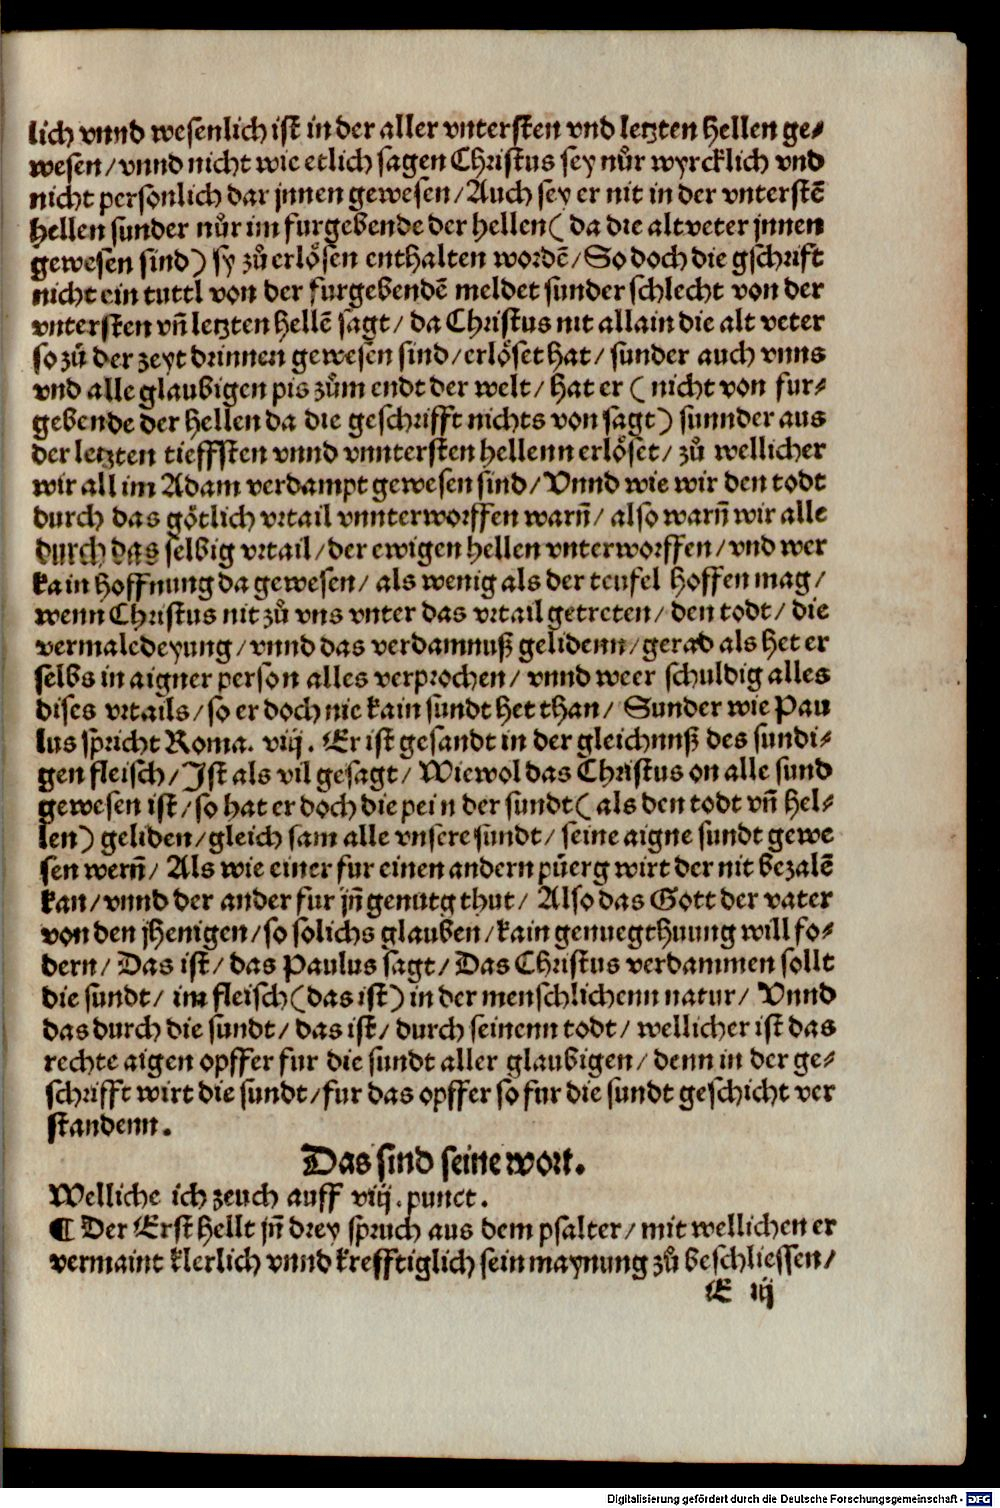 lich vnnd wesenlich ist in der aller vntersten vnd letzten hellen ge⸗
wesen / vnnd nicht wie etlich sagen Christus sey nůr wyrcklich vnd
nicht personlich dar jnnen gewesen / Auch sey er nit in der vnterstē
hellen sunder nůr im furgebende der hellen ( da die altveter jnnen
gewesen sind ) sy zů erlösen enthalten wordē / So doch die gschrift
nicht ein tuttl von der furgebendē meldet sunder schlecht von der
vntersten vn̄ letzten hellē sagt / da Christus nit allain die alt veter
so zů der zeyt drinnen gewesen sind / erlöset hat / sunder auch vnns
vnd alle glaubigen pis zům endt der welt / hat er ( nicht von fur⸗
gebende der hellen da die geschrifft nichts von sagt ) sunnder aus
der letzten tieffsten vnnd vnntersten hellenn erlöset / zů wellicher
wir all im Adam verdampt gewesen sind / Vnnd wie wir den todt
durch das götlich vrtail vnnterworffen warn̄ / also warn̄ wir alle
durch das selbig vrtail / der ewigen hellen vnterworffen / vnd wer
kain hoffnung da gewesen / als wenig als der teufel hoffen mag /
wenn Christus nit zů vns vnter das vrtail getreten / den todt / die
vermaledeyung / vnnd das verdamnuß gelidenn / gerad als het er
selbs in aigner person alles verprochen / vnnd weer schuldig alles
dises vrtails / so er doch nie kain sundt het than / Sunder wie Pau
lus spricht Roma. viij. Er ist gesandt in der gleichnuß des sundi⸗
gen fleisch / Jst als vil gesagt / Wiewol das Christus on alle sund
gewesen ist / so hat er doch die pein der sundt ( als den todt vn̄ hel⸗
len ) geliden / gleich sam alle vnsere sundt / seine aigne sundt gewe
sen wern̄ / Als wie einer fur einen andern püerg wirt der nit bezalē
kan / vnnd der ander fur jn̄ genutg thut / Also das Gott der vater
von den jhenigen / so solichs glauben / kain genuegthuung will fo⸗
dern / Das ist / das Paulus sagt / Das Christus verdammen sollt
die sundt / im fleisch ( das ist ) in der menschlichenn natur / Vnnd
das durch die sundt / das ist / durch seinenn todt / wellicher ist das
rechte aigen opffer fur die sundt aller glaubigen / denn in der ge⸗
schrifft wirt die sundt / fur das opffer so fur die sundt geschicht ver
standenn.
Das sind seine wort.
Welliche ich zeuch auff viij. punct.
¶ Der Erst hellt jn̄ drey spruch aus dem psalter / mit wellichen er
vermaint klerlich vnnd krefftiglich sein maynung zů beschliessen /
E iij
Digitalisierung gefördert durch die Deutsche Forschungsgemeinschaft - DFG